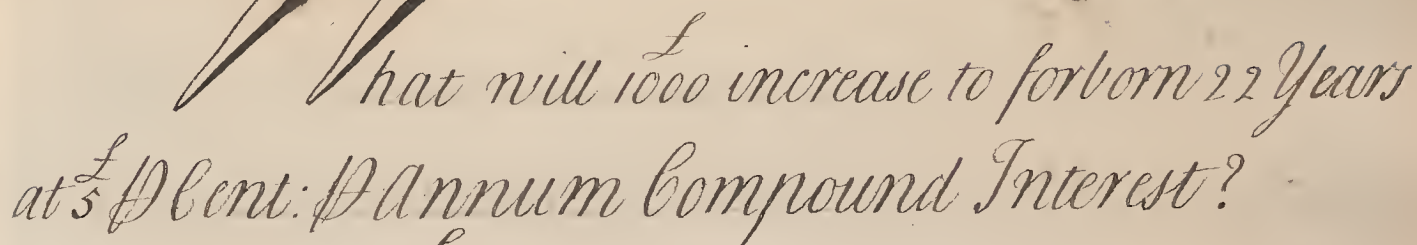 What will £1000 increase to forborn 22 Years
at £5 ⅌ Cent: ⅌ Annum Compound Interest?